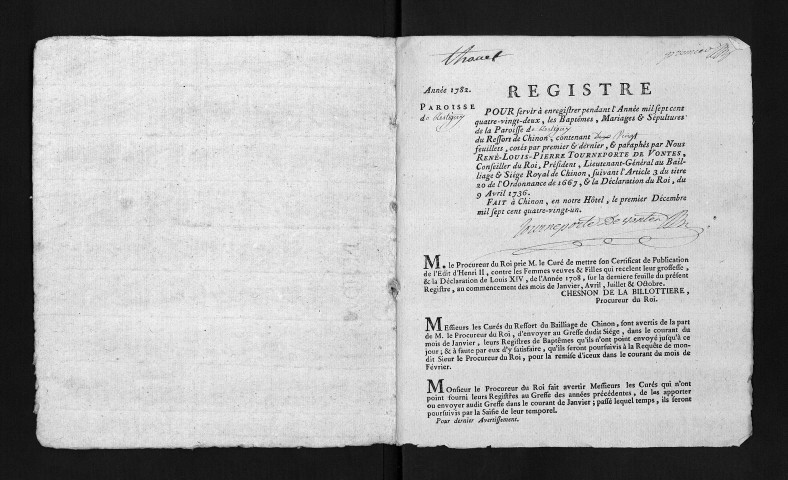 Thouet
premier
Année 1782.
REGISTRE
PAROISSE
de
POUR servir à enregistrer pendant l'Année mil sept cent
quatre-vingt-deux, les Baptêmes, Mariages & Sépultures
de la Paroisse de
du Ressort de Chinon, contenant Vingt
feuillets, cotés par premier & dernier, & paraphés par Nous
RENÉ-LOUIS-PIERRE TOURNEPORTE DE VONTES,
Conseiller du Roi, Président, Lieutenant-Général au Bail-
liage & Siége Royal de Chinon, suivant l'Article 3 du titre
20 de l'Ordonnance de 1667, & la Déclaration du Roi, du
9 Avril 1736.
FAIT à Chinon, en notre Hôtel, le premier Décembre
mil sept cent quatre-vingt-un.
Tourneporte De Vontes
M. le Procureur du Roi prie M. le Curé de mettre son Certificat de Publication
de l'Edit d'Henri II, contre les Femmes veuves & Filles qui recelent leur grossesse,
& la Déclaration de Louis XIV, de l'Année 1708, sur la derniere feuille du présent
Registre, au commencement des mois de Janvier, Avril, Juillet & Octobre.
CHESNON DE LA BILLOTTIERE,
Procureur du Roi.
Messieurs les Curés du Ressort du Bailliage de Chinon, sont avertis de la part
de M. le Procureur du Roi, d'envoyer au Greffe dudit Siége, dans le courant du
mois de Janvier, leurs Registres de Baptêmes qu'ils n'ont point envoyé jusqu'à ce
jour; & à faute par eux d'y satisfaire, qu'ils seront poursuivis à la Requête de mon-
dit Sieur le Procureur du Roi, pour la remise d'iceux dans le courant du mois de
Février.
Monsieur le Procureur du Roi fait avertir Messieurs les Curés qui n'ont
point fourni leurs Registres au Greffe des années précédentes, de les apporter
ou envoyer audit Greffe dans le courant de Janvier; passé lequel temps, ils seront
poursuivis par la Saisie de leur temporel.
Pour dernier Avertissement.